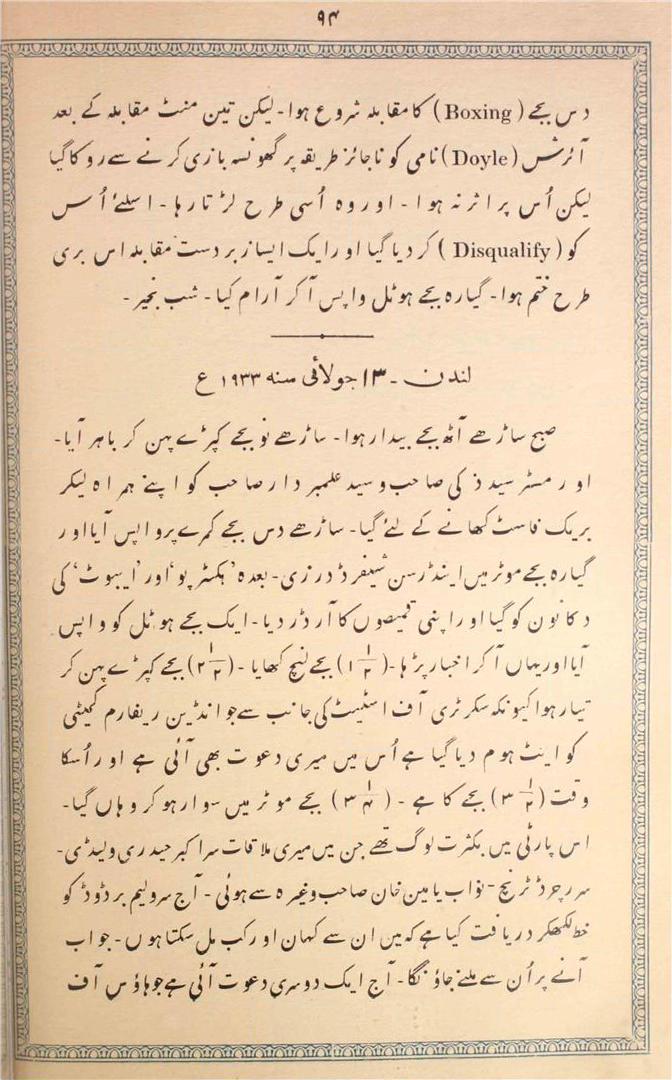 ۹۴
دس بجے (Boxing) کا مقابلہ شروع ہوا۔ لیکن تین منٹ مقابلہ کے بعد
آئرش (Doyle) نامی کو ناجائز طریقہ پر گھونسہ بازی کرنے سے روکا گیا
لیکن اُس پر اثر نہ ہوا۔ اور وہ اُسی طرح لڑتا رہا۔ اسلئے اُس
کو (Disqualify) کر دیا گیا اور ایک ایسا زبردست مقابلہ اس بری
طرح ختم ہوا۔ گیارہ بجے ہوٹل واپس آ کر آرام کیا۔ شب بخیر۔
لندن۔ ۱۳ جولائی سنہ ۱۹۳۳ ع
صبح ساڑھے آٹھ بجے بیدار ہوا۔ ساڑھے نو بجے کپڑے پہن کر باہر آیا۔
اور مسٹر سید ذکی صاحب و سید علمبردار صاحب کو اپنے ہمراہ لیکر
بریک فاسٹ کھانے کے لئے گیا۔ ساڑھے دس بجے کمرے پر واپس آیا اور
گیارہ بجے موٹر میں اینڈرسن شیفرڈ درزی۔ بعدہ ’ہکسٹر پو‘ اور ’ایبوٹ‘ کی
دکانوں کو گیا اور اپنی قمیصوں کا آرڈر دیا۔ ایک بجے ہوٹل کو واپس
آیا اور یہاں آ کر اخبار پڑھا۔ (۱ ۱/۲) بجے لنچ کھایا۔ (۲ ۱/۲) بجے کپڑے پہن کر
تیار ہوا کیونکہ سکرٹری آف اسٹیٹ کی جانب سے جو انڈین ریفارم کمیٹی
کو ایٹ ہوم دیا گیا ہے اُس میں میری دعوت بھی آئی ہے اور اُسکا
وقت (۳ ۱/۲) بجے کا ہے۔ (۳ ۱/۴) بجے موٹر میں سوار ہو کر وہاں گیا۔
اس پارٹی میں بکثرت لوگ تھے جن میں میری ملاقات سر اکبر حیدری و لیڈی۔
سر رچرڈ ٹرنچ۔ نواب یامین خان صاحب وغیرہ سے ہوئی۔ آج سر ولیم برڈوڈ کو
خط لکھکر دریافت کیا ہے کہ میں ان سے کہاں اور کب مل سکتا ہوں۔ جواب
آنے پر اُن سے ملنے جاؤنگا۔ آج ایک دوسری دعوت آئی ہے جو ہاؤس آف